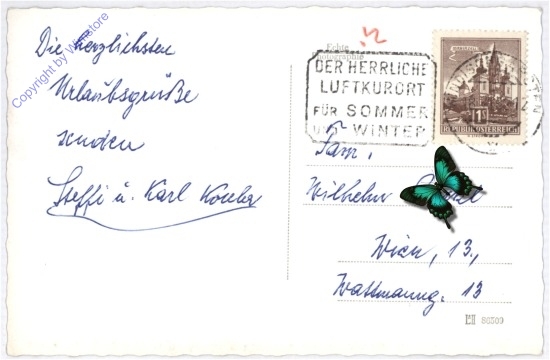 Die herzlichsten
Urlaubsgrüße
senden
Steffi u. Karl
Copyright by Winstore
Echte
Photographie
DER HERRLICHE
LUFTKURORT
FÜR SOMMER
UND WINTER
REPUBLIK ÖSTERREICH
Fam.
Wilhelm
Wien, 13.,
Wattmanng. 13
86309